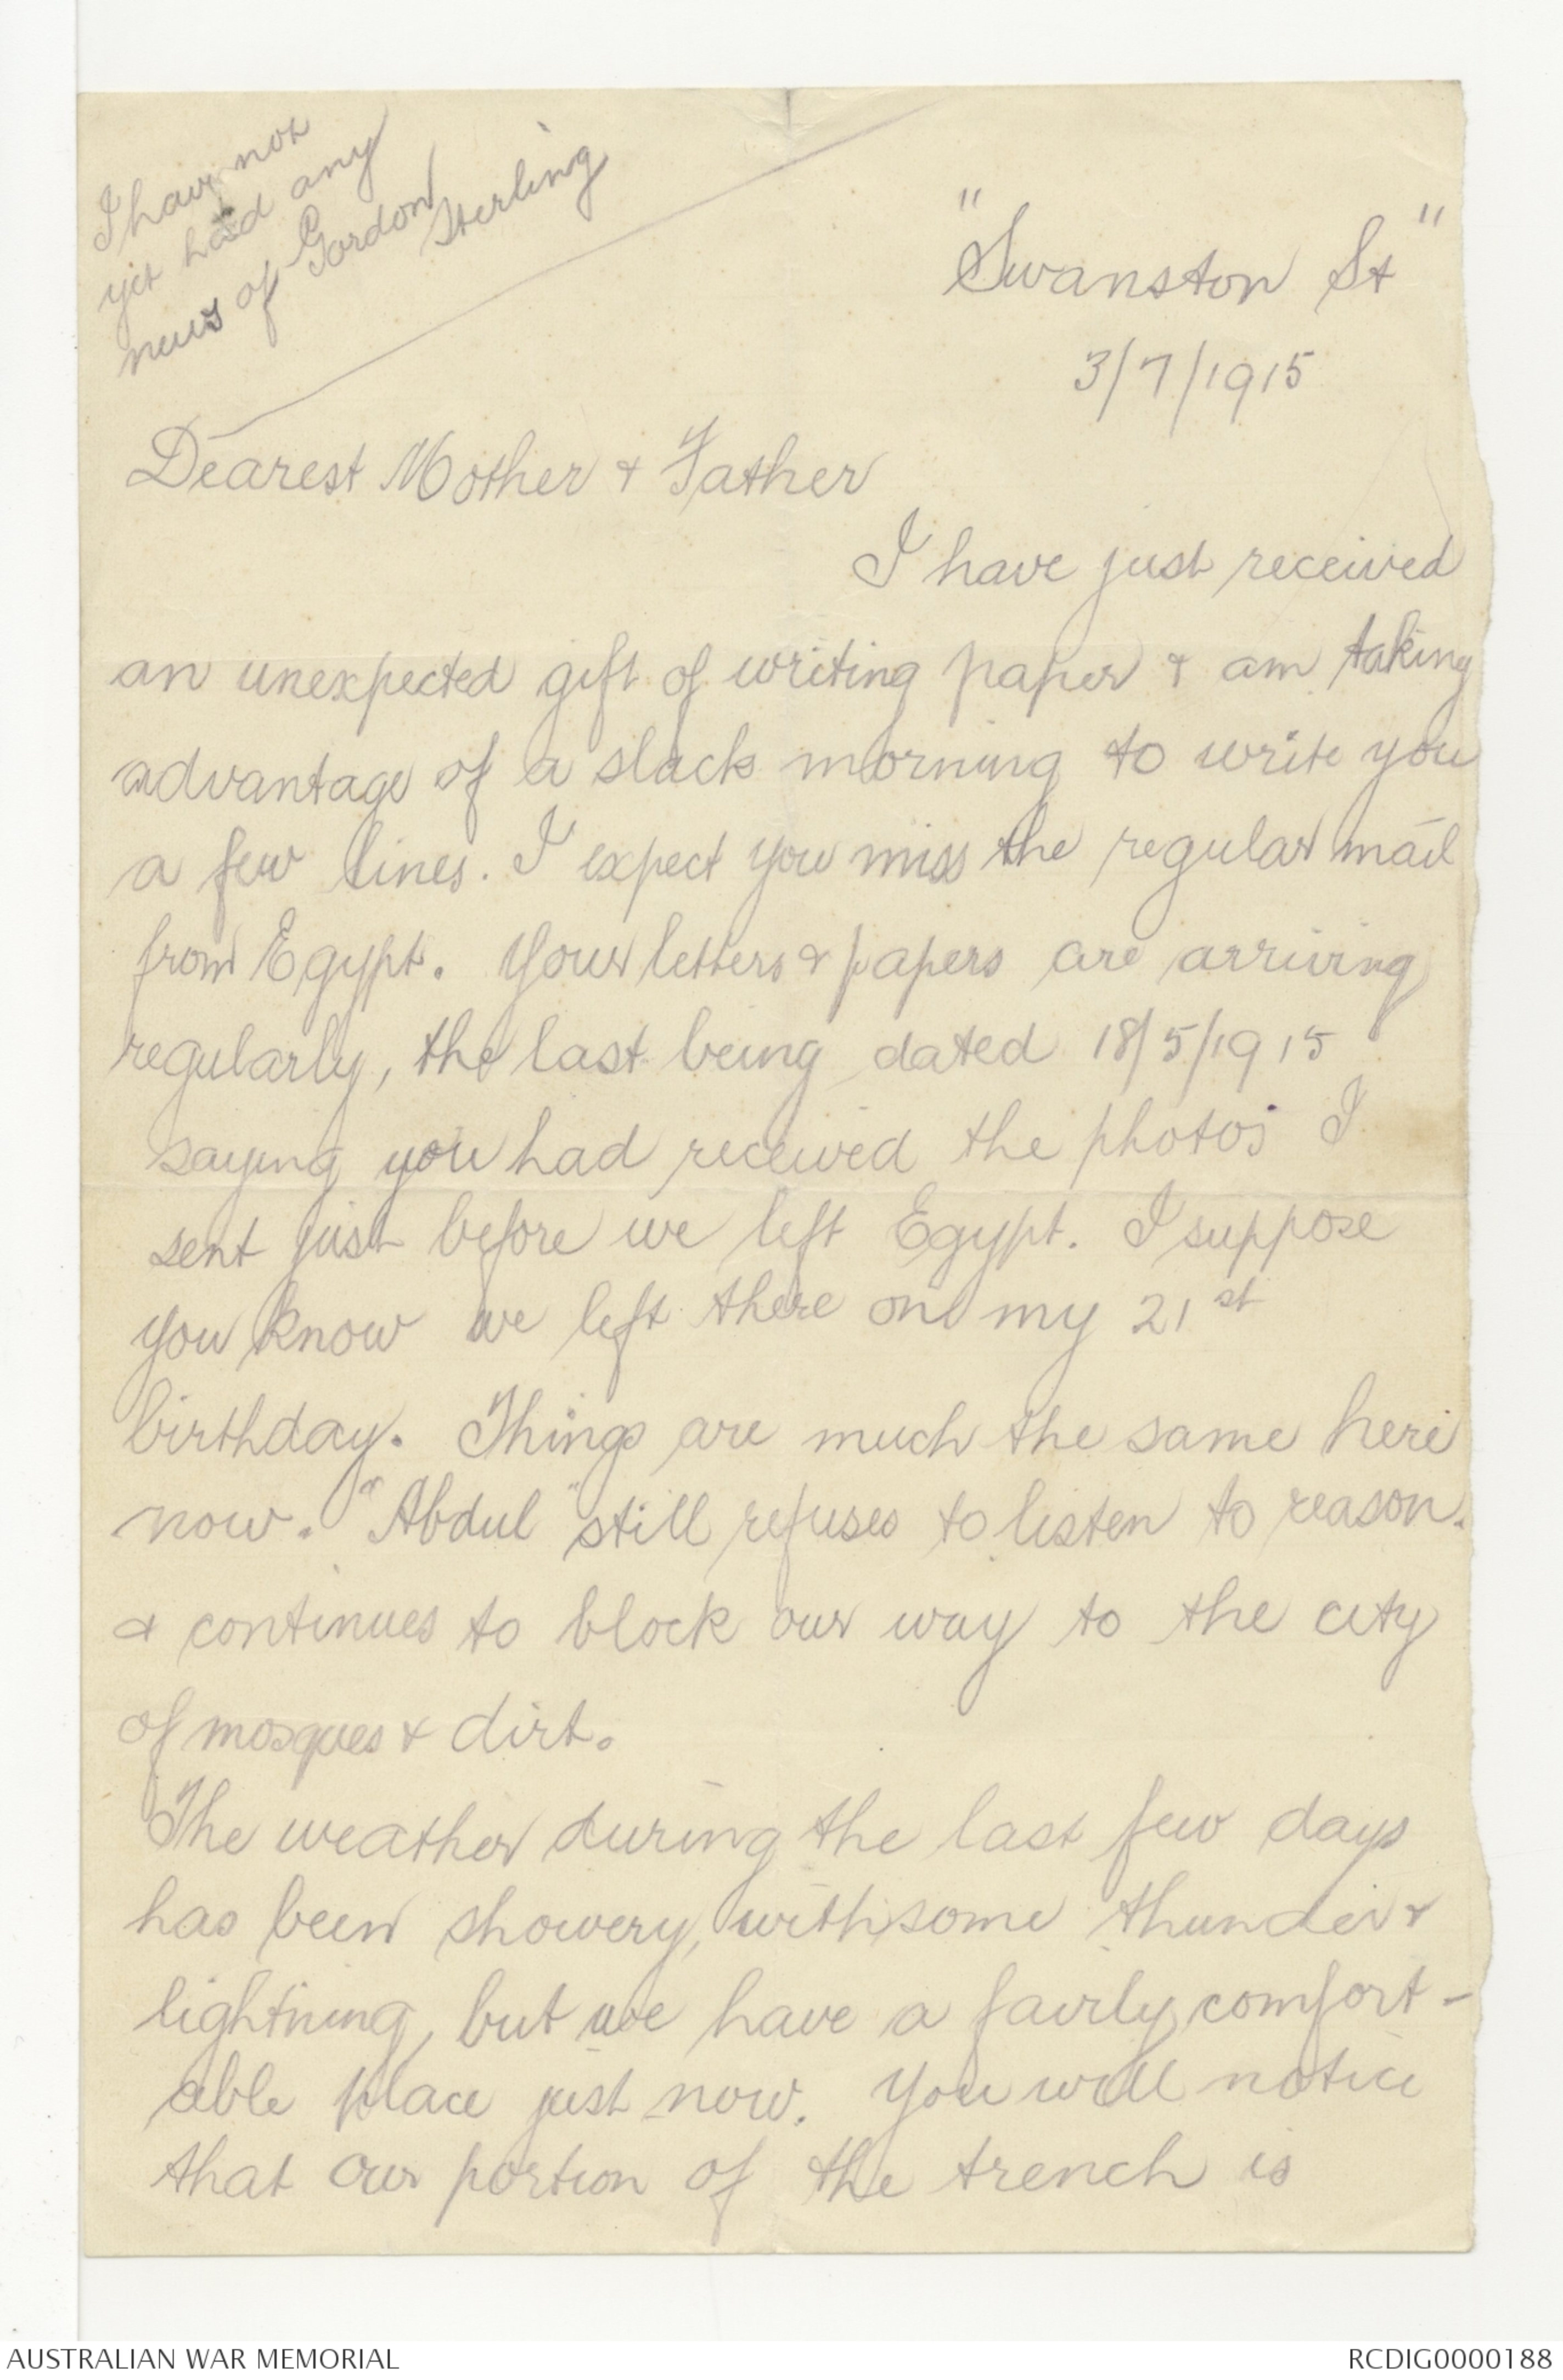 I have not
yet had any
news of Gordon
Sterling
"Swanston St"
3/7/1915
Dearest Mother & Father
I have just received
an unexpected gift of writing paper & am taking
advantage of a slack morning to write you
a few lines. I expect you miss the regular mail
from Egypt. Your letters & papers are arriving
regularly, the last being dated 18/5/1915
saying you had received the photos I
sent just before we left Egypt. I suppose
you know we left there on my 21st
birthday. Things are much the same here
now. "Abdul" still refuses to listen to reason.
& continues to block our way to the city
of mosques & dirt.
The weather during the last few days
has been showery, with some thunder &
lightning, but we have a fairly comfort-
able place just now. You will notice
that our portion of the trench is
AUSTRALIAN WAR MEMORIAL
RCDIG0000188